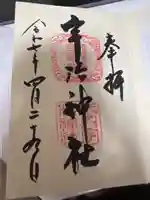 奉拝
宇治神社
令和七年四月二十九日